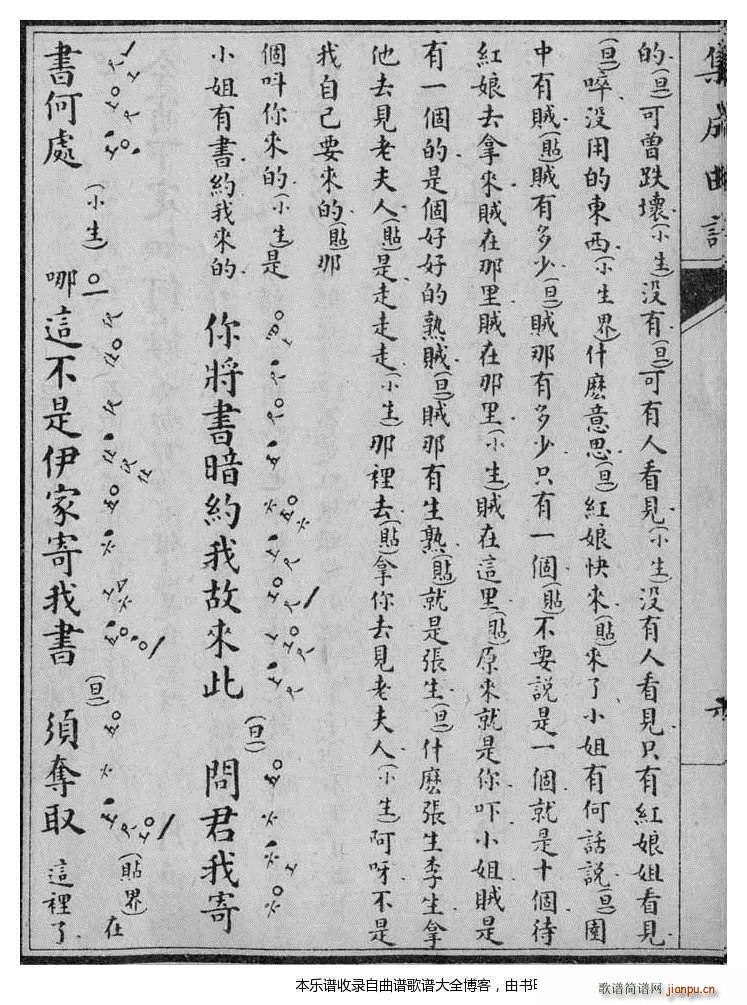 集成曲譜
的(旦)可曾跌壞(小生)没有(旦)可有人看見(小生)没有人看見只有紅娘姐看見
(旦)啐没用的東西(小生界)什麽意思(旦)紅娘快來(貼)來了小姐有何話說(旦)園
中有賊(貼)賊有多少(旦)賊那有多少只有一個(貼)不要説是一個就是十個待
紅娘去拿來賊在那里賊在那里(小生)賊在這里(貼)原來就是你吓小姐賊是
有一個的是個好好的熟賊(旦)賊那有生熟(貼)就是張生(旦)什麽張生李生拿
他去見老夫人(貼)是走走走(小生)那裡去(貼)拿你去見老夫人(小生)阿呀不是
我自己要來的(貼)那
個呌你來的(小生)是
小姐有書約我來的
你將書暗約我故來此(旦)問君我寄
書何處(小生)哪這不是伊家寄我書(旦)須奪取(貼界)在這裡了
本乐谱收录自曲谱歌谱大全博客，由书
歌谱简谱网
jianpu.cn